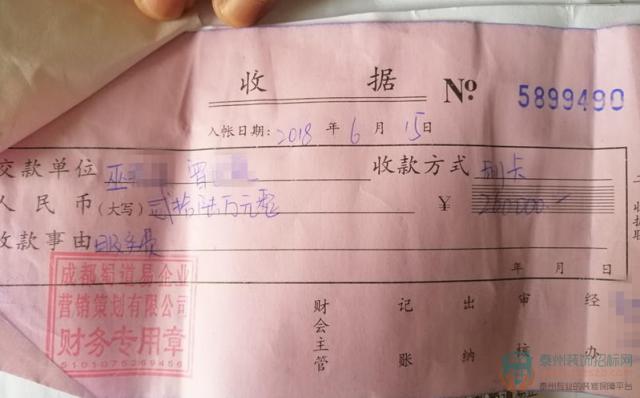 收 据 № 5899490
入帐日期: 2018 年 6 月 15 日
交款单位 巫 曾 收款方式 刷卡
人民币(大写) 贰拾陆万元整 ¥ 260000
收款事由 服务费
年 月 日
成都蜀道易企业
营销策划有限公司
财务专用章
5101075269456
财会主管 记账 出纳 审核 经办
收据
泰州装饰招标网
泰州专业的装修保障平台